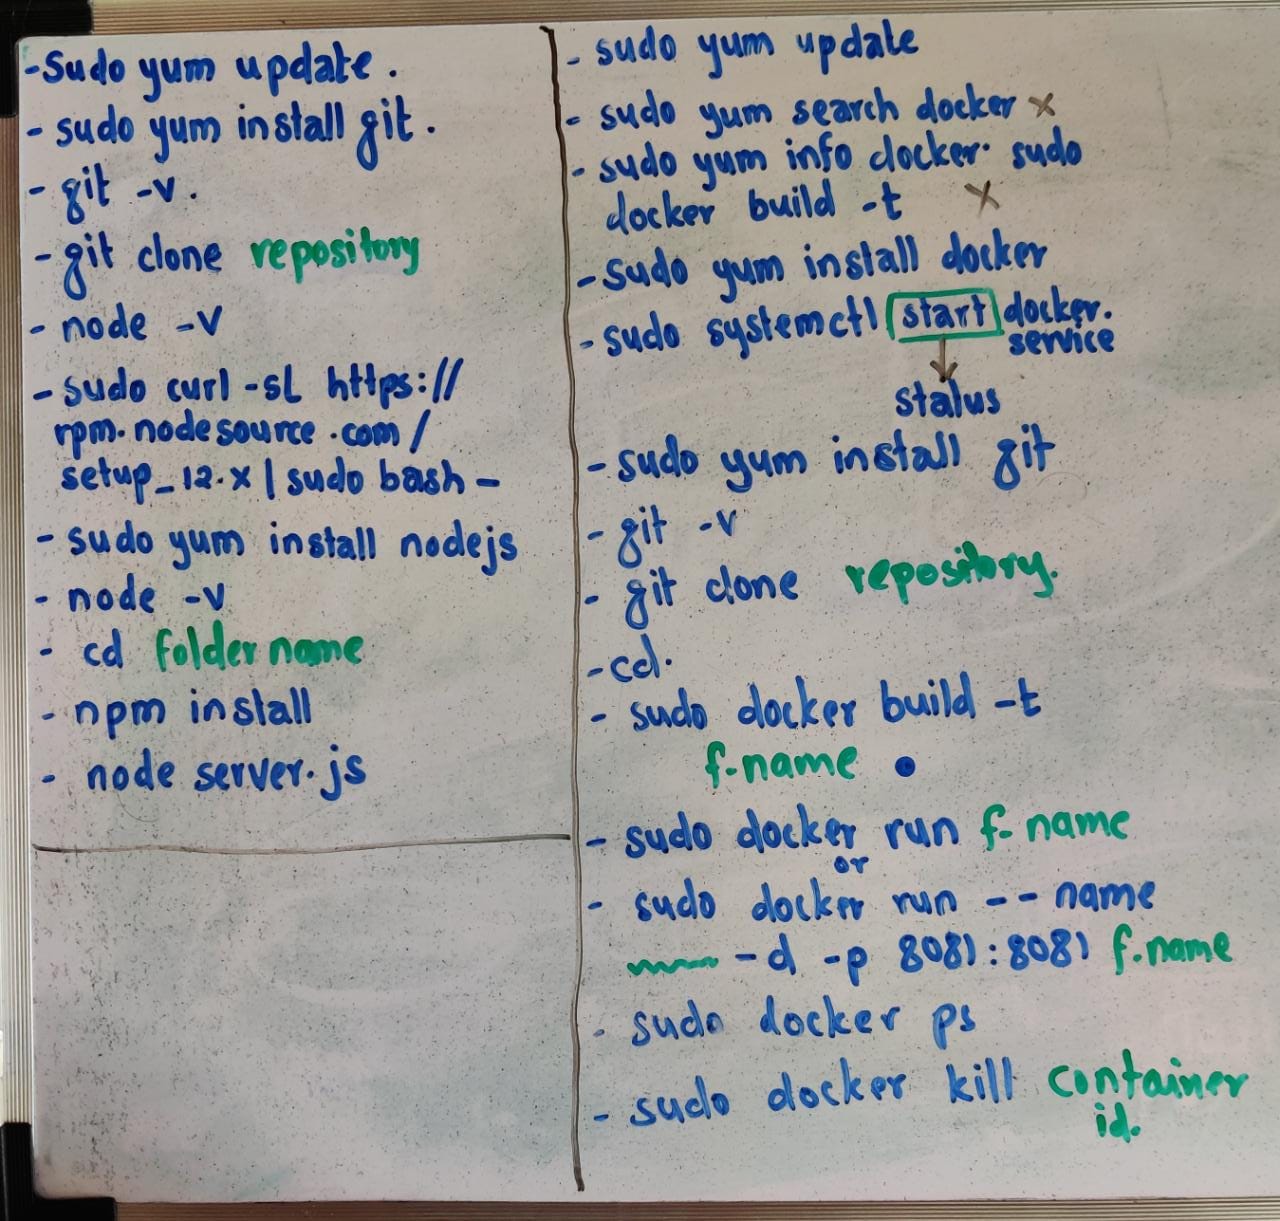 -Sudo yum update.
- sudo yum install git.
- git -v.
- git clone repository
- node -v
- sudo curl -sL https://
rpm.nodesource.com/
setup_12.x | sudo bash -
- sudo yum install nodejs
- node -v
- cd folder name
- npm install
- node server.js
- sudo yum update
- sudo yum search docker x
- sudo yum info docker. sudo
docker build -t x
- sudo yum install docker
- sudo systemctl start docker.
service
status
- sudo yum install git
- git -v
- git clone repository.
- cd.
- sudo docker build -t
f.name .
- sudo docker run f-name
or
- sudo docker run -- name
-d -p 8081:8081 f.name
- sudo docker ps
- sudo docker kill container
id.